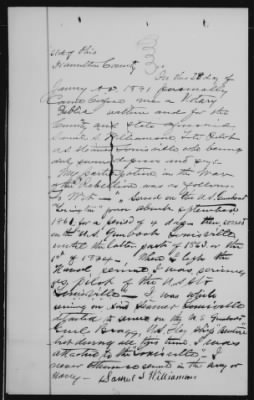 State of Ohio
Hamilton County
On this 28 day of
January A.D. 1891 personally
Came before me a Notary
Public within and for the
County and State aforesaid
Samuel S. Williamson late Pilot
as Steamer Louisville who being
duly sworn deposes and says
My participation in the War
of the Rebellion was as follows
To Wit. I served on the U.S. Gunboat
"Lexington" from about September
for a period of days then served
on the U.S. Gunboat Louisville
until the latter part of 1863 or the
1st of 1864. When I left the
Naval service I was serving
as pilot of the U.S. Str
Louisville. I was while
serving on Steamer Louisville
detailed to serve on the U.S. Gunboat
Genl Bragg, U.S.
but during all this time I was
attached to the Louisville. I
never otherwise served in the Army or
Navy. Samuel S Williamson